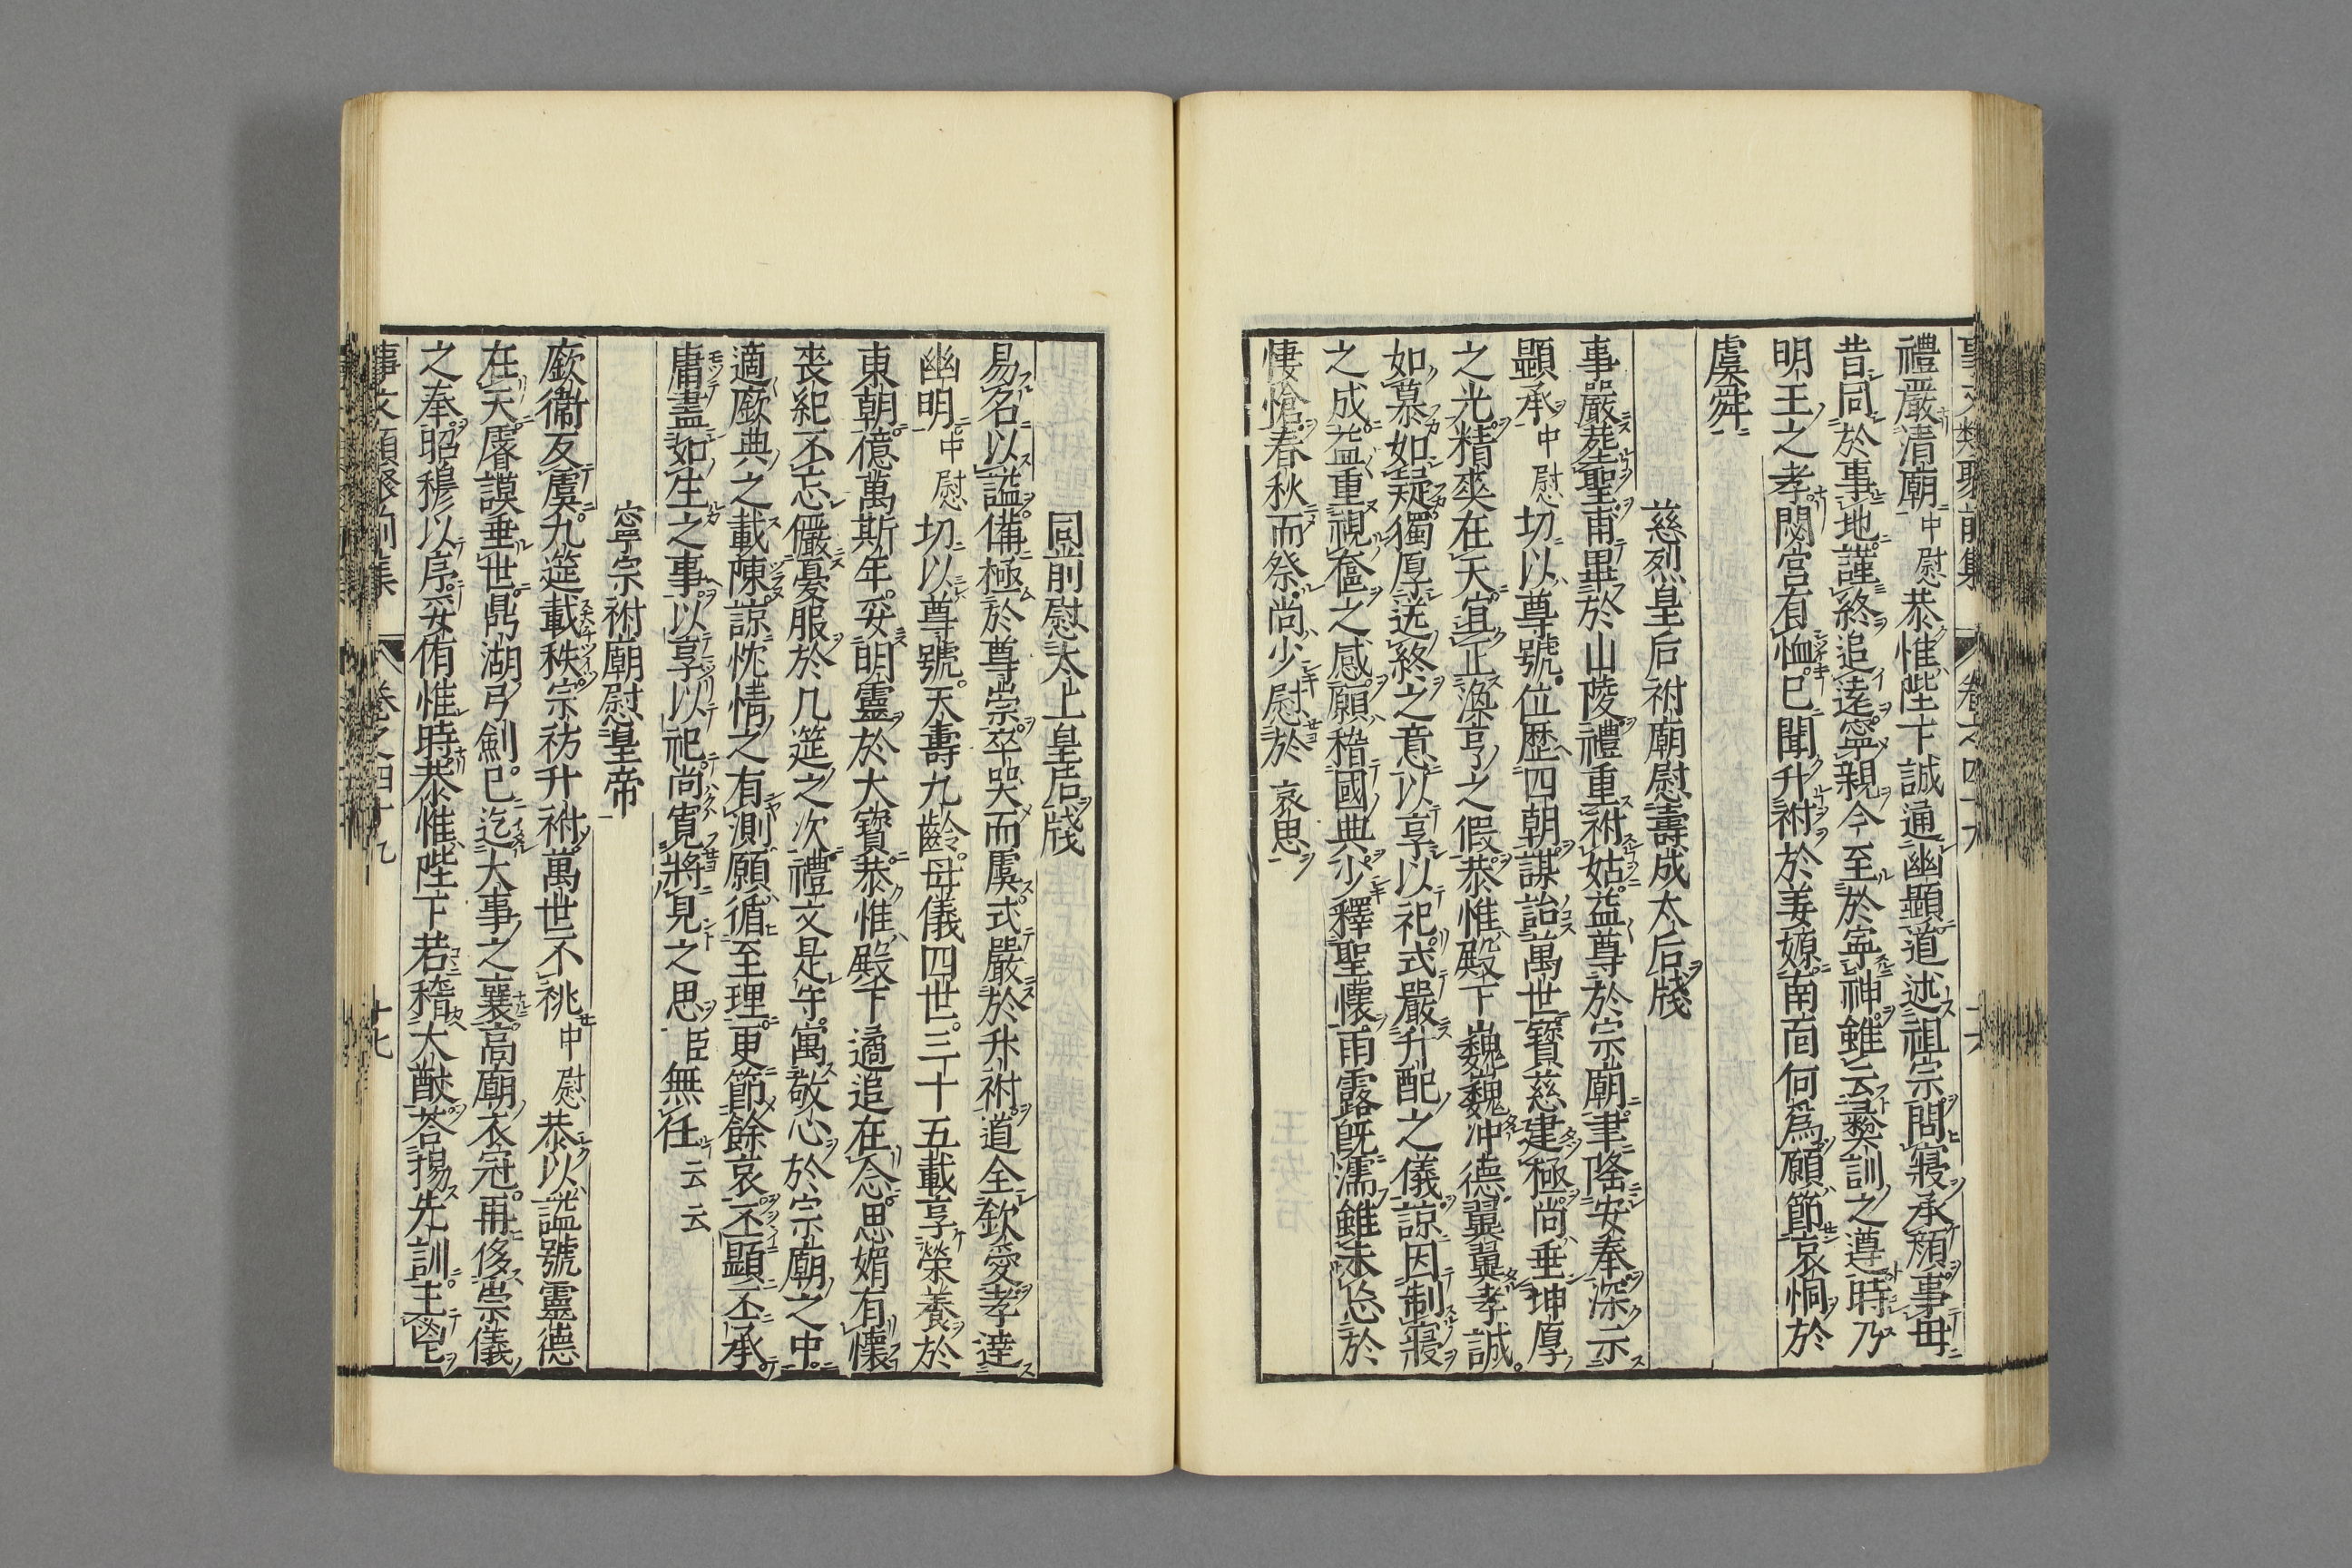 事文類聚前集 卷之四十九 十六
禮嚴清廟中慰恭惟陛下誠通幽顯道述祖宗問寢承顏事毋
昔同於事地謹終追遠寧親今至於寧神雖云彛訓之遵時乃
明王之孝閟宮有恤已聞升祔於姜嫄南面何爲願節哀恫於
虞舜
慈烈皇后祔廟慰壽成太后牋
事嚴塟聖甫畢於山陵禮重祔姑益尊於宗廟聿隆安奉深示
顯承中慰切以尊號位歴四朝謀詒萬世寳慈建極尚垂坤厚
之光精爽在天宜正渙亨之假恭惟殿下巍巍冲德翼翼孝誠
如慕如疑獨厚送終之意以享以祀式嚴升配之儀諒因制寢
之成益重視奩之感願稽國典少釋聖懷雨露既濡雖未忘於
悽愴春秋而祭尚少慰於 哀思
同前慰太上皇后牋
易名以謚備極於尊崇卒哭而虞式嚴於升祔道全欽愛孝達
幽明中慰切以尊號天壽九齡母儀四世三十五載享榮養於
東朝億萬斯年妥明靈於大寳恭惟殿下遹追在念思媚有懷
䘮紀不忘儼憂服於几筵之次禮文是守寓敬心於宗廟之中
適厥典之載陳諒忱情之有測願循至理更節餘哀丕顯丕承
庸盡如生之事以享以祀尚寛將見之思臣無任 云云
寧宗祔廟慰皇帝
廞衞反虞九筵載秩宗祊升祔萬世不祧中慰恭以謚號靈德
在天廥謨垂世鼎湖弓劍已迄大事之襄高廟衣冠再侈崇儀
之奉昭穆以序妥侑惟時恭惟陛下若稽大猷荅揚先訓主鬯
事文類聚前集 卷之四十九 十七